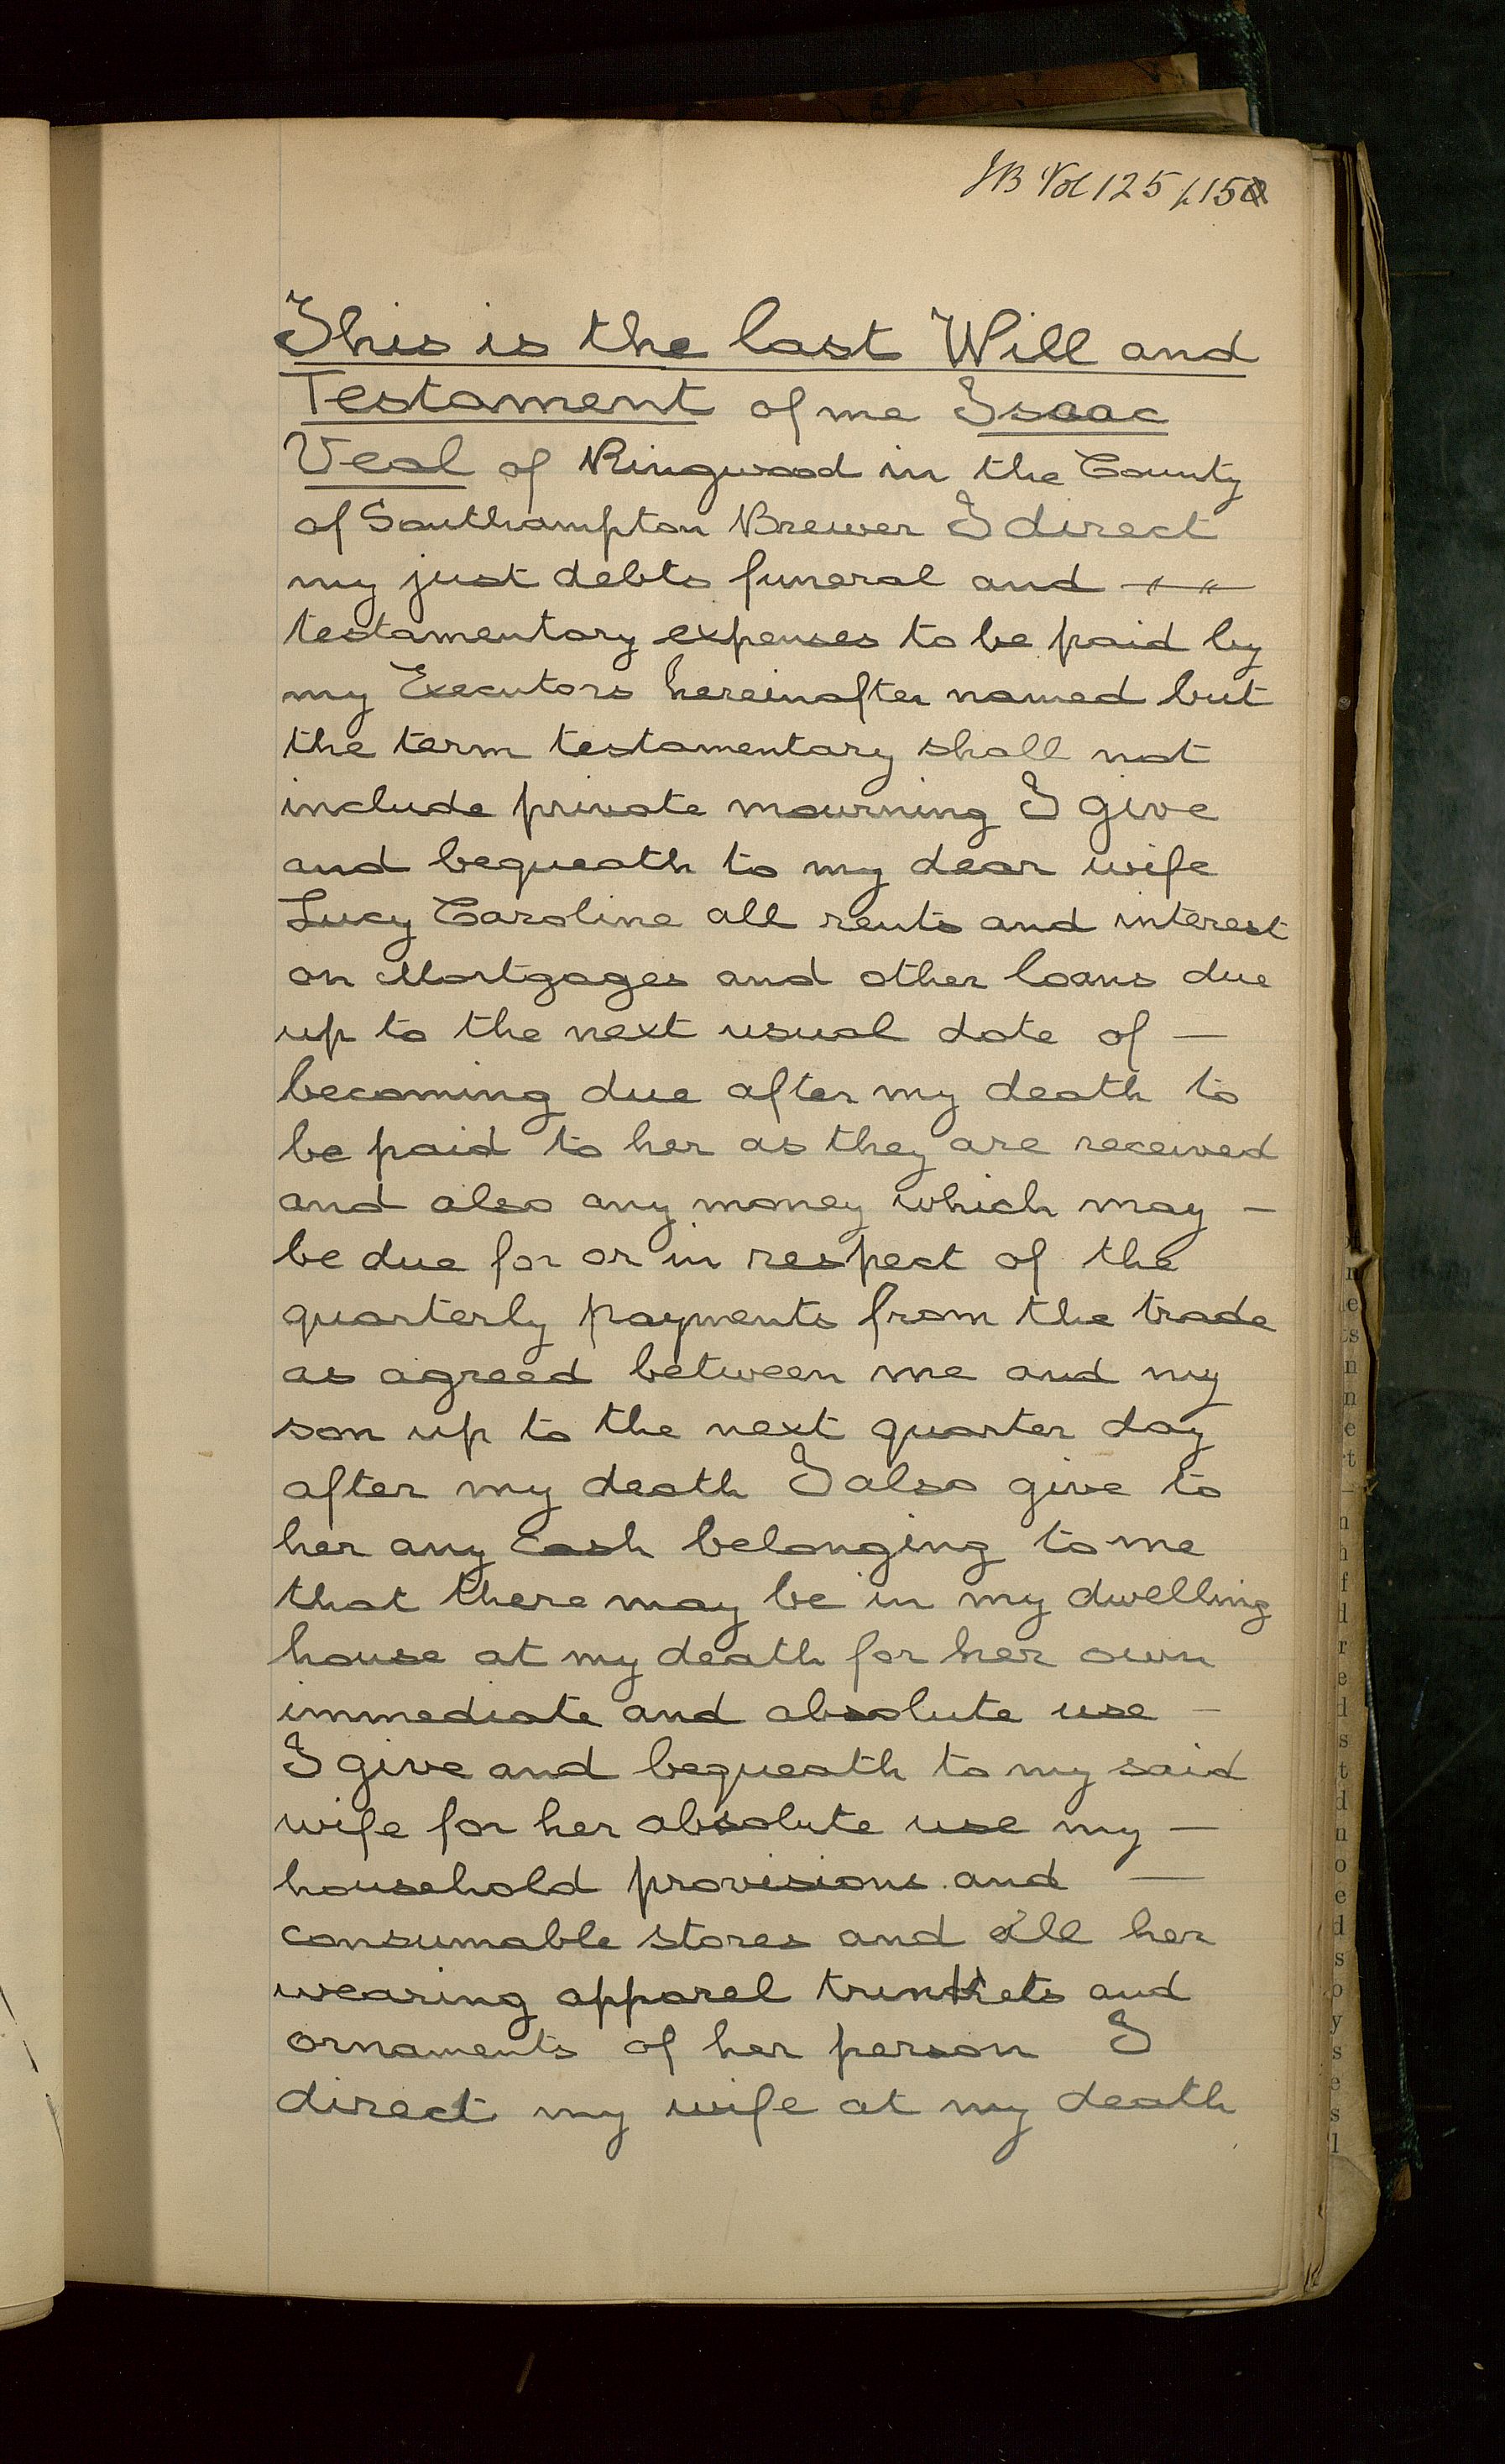 JB Vol 125 p. 15
This is the last Will and
Testament of me Isaac
Veal of Ringwood in the County
of Southampton Brewer I direct
my just debts funeral and — " "
testamentary expenses to be paid by
my Executors hereinafter named but
the term testamentary shall not
include private mourning I give
and bequeath to my dear wife
Lucy Caroline all rents and interest
on Mortgages and other loans due
up to the next usual date of —
becoming due after my death to
be paid to her as they are received
and also any money which may —
be due for or in respect of the
quarterly payments from the trade
as agreed between me and my
son up to the next quarter day
after my death I also give to
her any cash belonging to me
that there may be in my dwelling
house at my death for her own
immediate and absolute use —
I give and bequeath to my said
wife for her absolute use my —
household provisions and —
consumable stores and all her
wearing apparel trinkets and
ornaments of her person I
direct my wife at my death